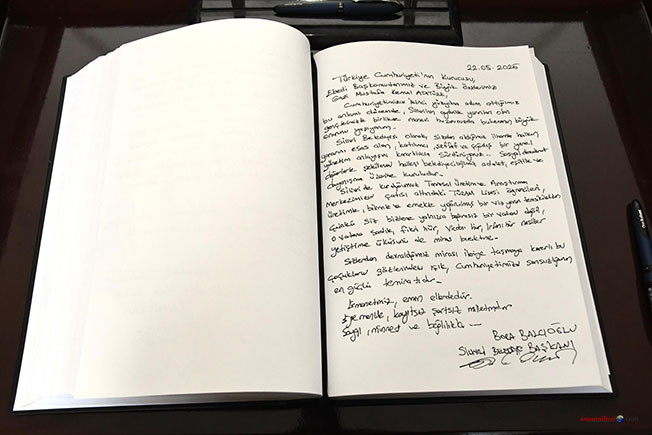 22.05.2025
Türkiye Cumhuriyeti'nin Kurucusu,
Ebedi Başkomutanımız ve Büyük Önderimiz
Gazi Mustafa Kemal ATATÜRK,
Cumhuriyetimizin ikinci yüzyılına adım attığımız
bu anlamlı dönemde, Silivri'nin aydınlık yarınları olan
gençlerimizle birlikte manevi huzurunuzda bulunmanın büyük
onurunu yaşıyorum.
Silivri Belediyesi olarak, sizden aldığımız ilhamla halkın
yararını esas alan, katılımcı, şeffaf ve çağdaş bir yerel
yönetim anlayışını kararlılıkla sürdürüyoruz. Sosyal demokrat
değerlerle şekillenen halkçı belediyeciliğimiz adalet, eşitlik ve
dayanışma üzerine kuruludur.
Silivri'de kurduğumuz Tarımsal Üretim ve Araştırma
Merkezimizin çatısı altındaki Tarım Lisesi öğrencileri,
üretimle, bilimle ve emekle yoğrulmuş bir vizyonun temsilcileridir.
Çünkü siz bizlere yalnızca bağımsız bir vatan değil,
o vatana sadık, fikri hür, vicdanı hür, irfanı hür nesiller
yetiştirme ülküsünü de miras bıraktınız.
Sizlerden devraldığımız mirası ileriye taşımaya kararlı bu
çocukların gözlerindeki ışık, Cumhuriyetimizin sonsuzluğunun
en güçlü teminatıdır.
Emanetiniz, emin ellerdedir.
Egemenlik, kayıtsız şartsız milletindir
Saygı, minnet ve bağlılıkla
BORA BALCIOĞLU
Silivri BELEDİYE BAŞKANI